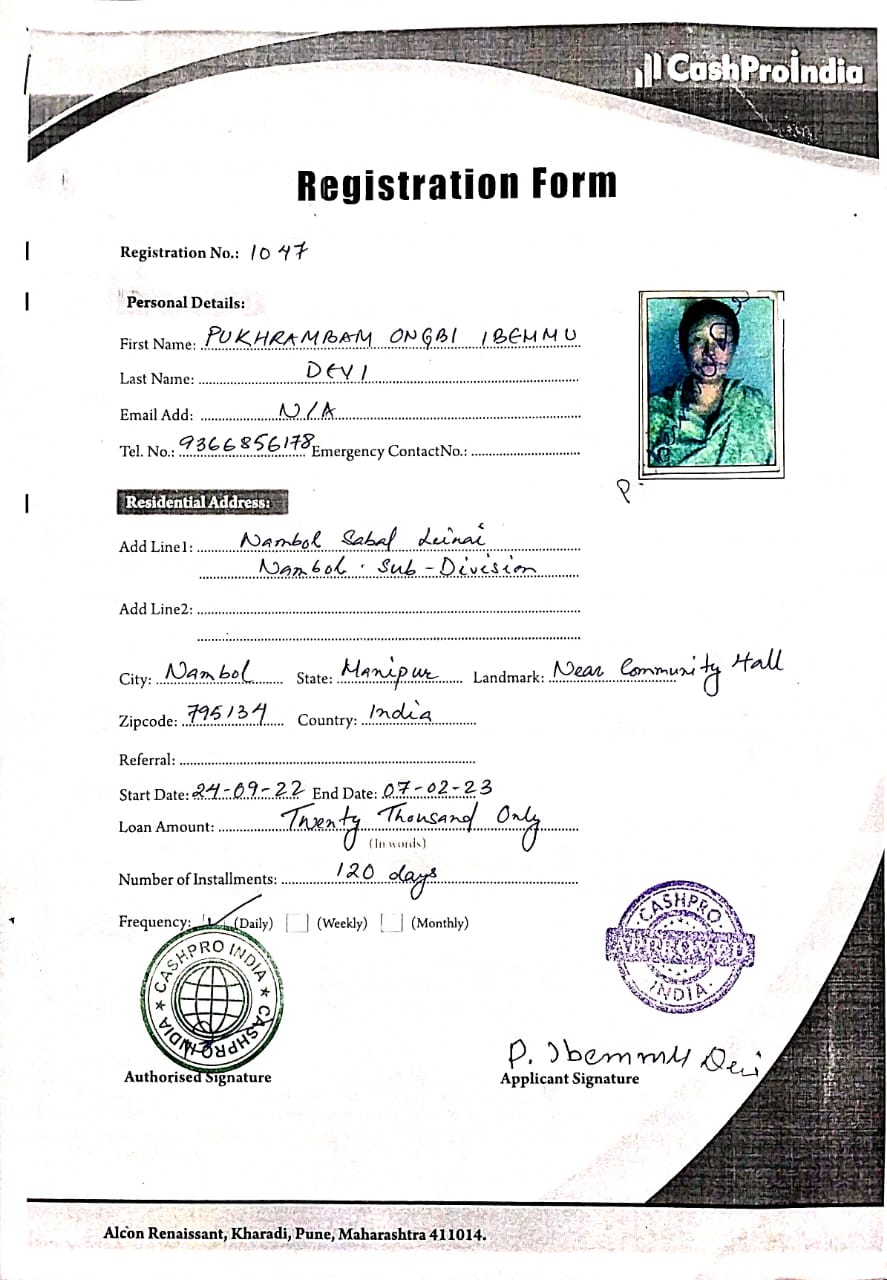 CashProIndia
Registration Form
Registration No.: 1047
Personal Details:
First Name: PUKHRAMBAM ONGBI IBEMMU
Last Name: DEVI
Email Add: N/A
Tel. No.: 9366856178 Emergency ContactNo.:
P.
Residential Address:
Add Line1: Nambol Sabal Leinai
Nambol . Sub-Division
Add Line2:
City: Nambol State: Manipur Landmark: Near Community Hall
Zipcode: 795134 Country: India
Referral:
Start Date: 24-09-22 End Date: 07-02-23
Loan Amount: Twenty Thousand Only
(In words)
Number of Installments: 120 days
Frequency: (Daily) (Weekly) (Monthly)
CASHPRO INDIA CASHPRO INDIA
CASHPRO APPROVED INDIA
P. Ibemmu Devi
Authorised Signature Applicant Signature
Alcon Renaissant, Kharadi, Pune, Maharashtra 411014.